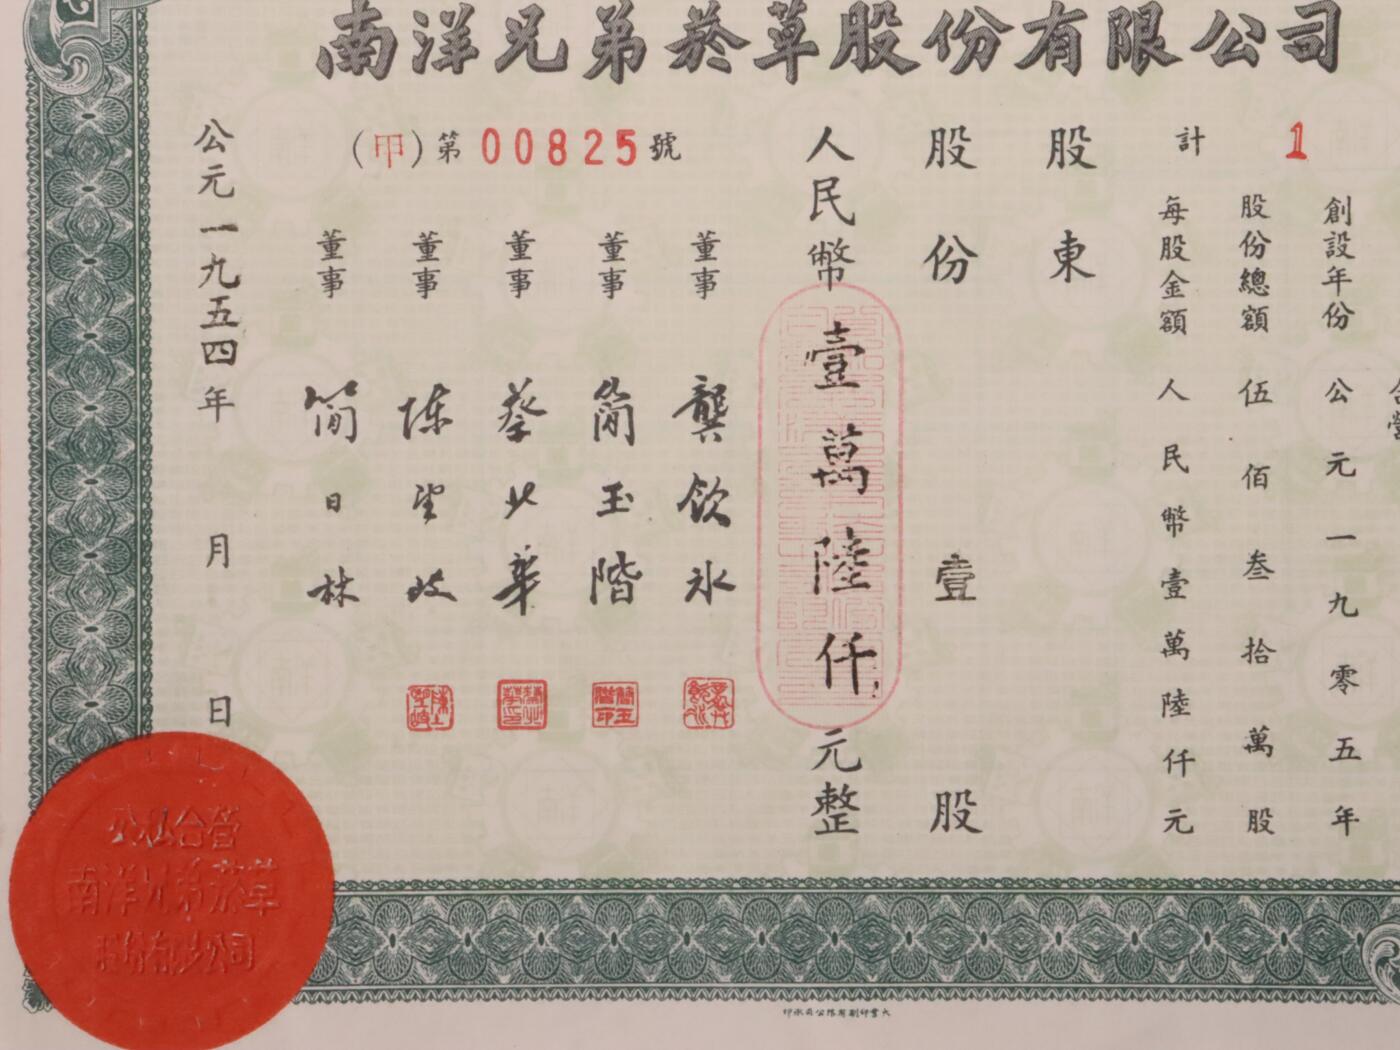 南洋兄弟菸草股份有限公司
計 1
創設年份 公元一九零五年
股份總額 伍佰叁拾萬股
每股金額 人民幣壹萬陸仟元
股東
股份 壹 股
人民幣壹萬陸仟元整
(甲)第 00825 號
董事 龔飲冰
董事 簡玉階
董事 蔡北華
董事 陈望岐
董事 简日林
公元一九五四年 月 日
公私合營
南洋兄弟菸草
股份有限公司
大業印刷有限公司承印